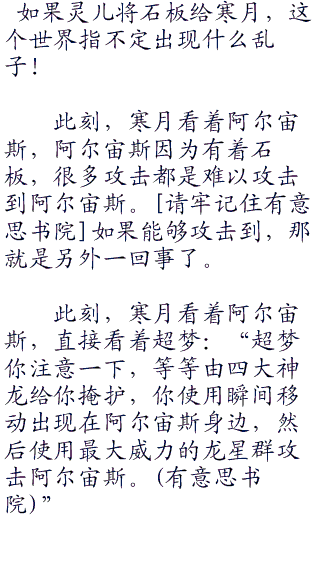 如果灵儿将石板给寒月，这
个世界指不定出现什么乱
子！
此刻，寒月看着阿尔宙
斯，阿尔宙斯因为有着石
板，很多攻击都是难以攻击
到阿尔宙斯。[请牢记住有意
思书院]如果能够攻击到，那
就是另外一回事了。
此刻，寒月看着阿尔宙
斯，直接看着超梦：“超梦
你注意一下，等等由四大神
龙给你掩护，你使用瞬间移
动出现在阿尔宙斯身边，然
后使用最大威力的龙星群攻
击阿尔宙斯。(有意思书
院)”